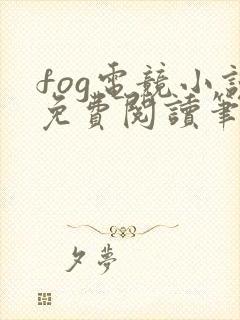 fog電競小說
免費閱讀筆
夕夢